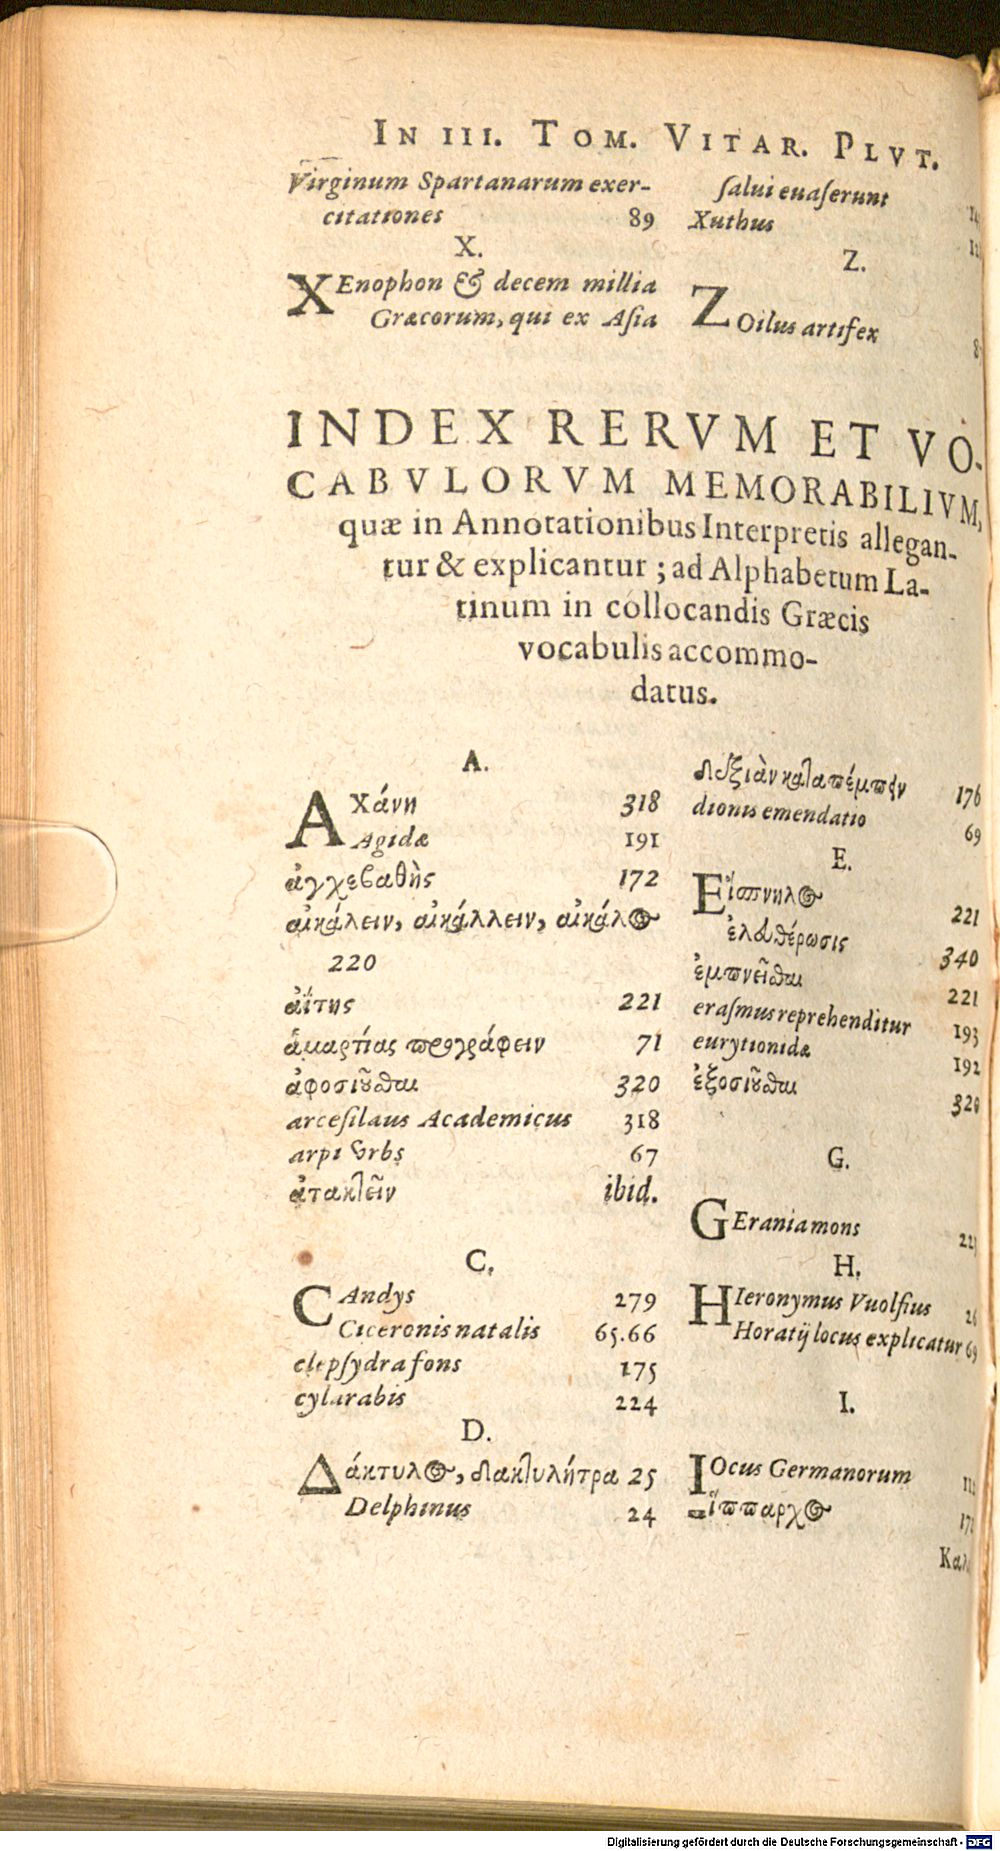 IN III. TOM. VITAR. PLVT.
Virginum Spartanarum exer-
citationes 89
X.
XEnophon & decem millia
Græcorum, qui ex Aſia
ſalui euaſerunt
Xuthus
Z.
ZOilus artifex
INDEX RERVM ET VO-
CABVLORVM MEMORABILIVM,
quæ in Annotationibus Interpretis allegan-
tur & explicantur ; ad Alphabetum La-
tinum in collocandis Græcis
vocabulis accommo-
datus.
A.
Αχάνη 318
Agidæ 191
ἀγχεβαθὴς 172
αἰκάλειν, αἰκάλλειν, αἰκάλος
220
ἀΐτης 221
ἁμαρτίας προγράφειν 71
ἀφοσιοῦσθαι 320
arceſilaus Academicus 318
arpi vrbs 67
ἀτακτεῖν ibid.
C.
CAndys 279
Ciceronis natalis 65.66
clepſydra fons 175
cylarabis 224
D.
Δάκτυλος, δακτυλήτρα 25
Delphinus 24
δεξιὰν καταπέμπειν 176
dionis emendatio 69
E.
Εἴσπνηλος 221
ἐλευθέρωσις 340
ἐμπνεῖσθαι 221
eraſmus reprehenditur 193
eurytionidæ 192
ἐξοσιοῦσθαι 320
G.
GErania mons
H.
HIeronymus Vuolfius 26
Horatij locus explicatur 69
I.
IOcus Germanorum
ἵππαρχος
Digitalisierung gefördert durch die Deutsche Forschungsgemeinschaft - DFG